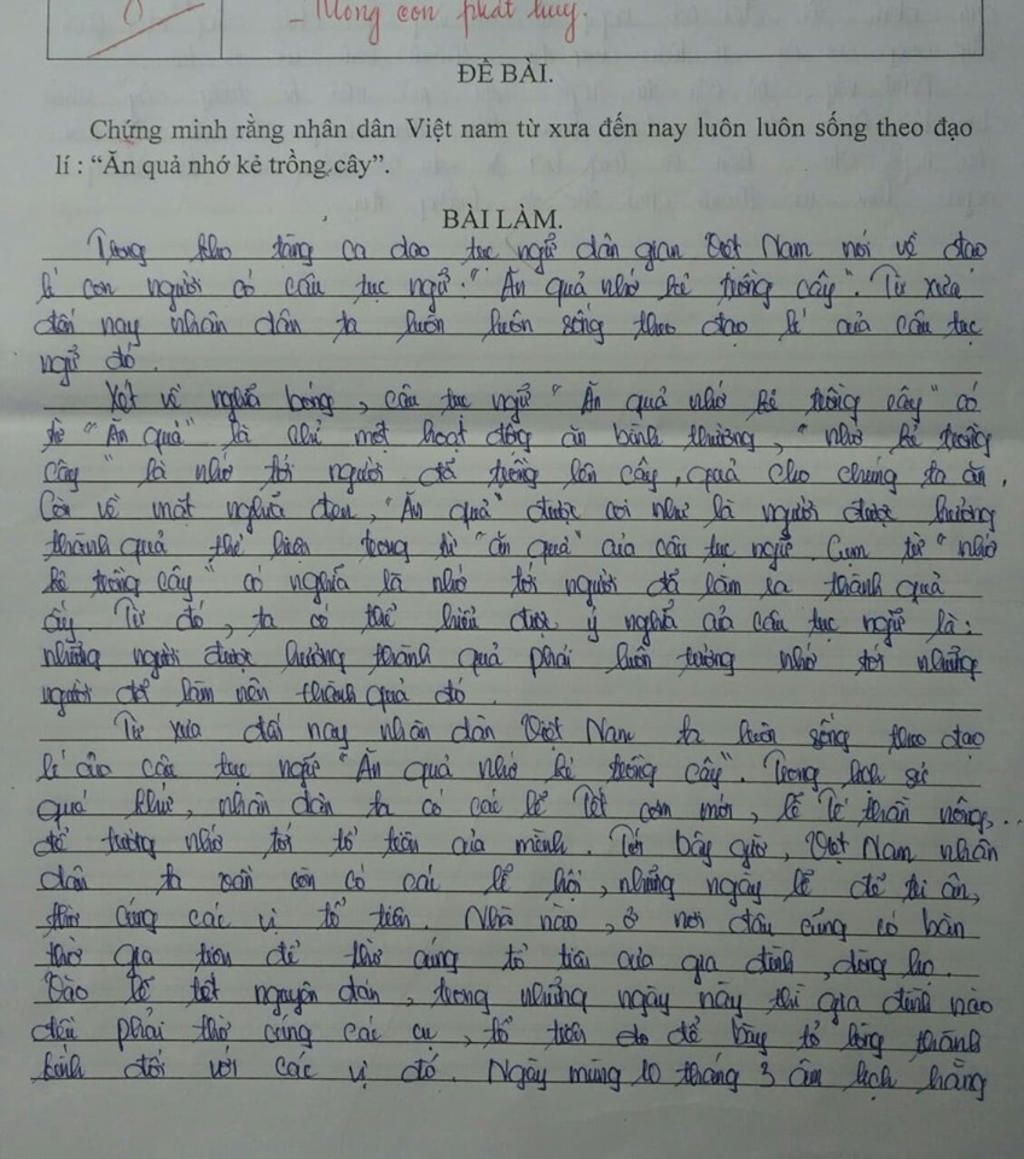 - Mong con phát huy.
ĐỀ BÀI.
Chứng minh rằng nhân dân Việt nam từ xưa đến nay luôn luôn sống theo đạo
lí : “Ăn quả nhớ kẻ trồng cây”.
BÀI LÀM.
Trong kho tàng ca dao tục ngữ dân gian Việt Nam nói về đạo
lí con người có câu tục ngữ: "Ăn quả nhớ kẻ trồng cây". Từ xưa
đến nay nhân dân ta luôn luôn sống theo đạo lí của câu tục
ngữ đó.
Xét về nghĩa bóng, câu tục ngữ "Ăn quả nhớ kẻ trồng cây" có
từ "Ăn quả" là chỉ một hoạt động ăn bình thường, "nhớ kẻ trồng
cây" là nhớ tới người đã trồng lên cây, quả cho chúng ta ăn.
Còn về mặt nghĩa đen, "Ăn quả" được coi như là người được hưởng
thành quả thể hiện trong từ "ăn quả" của câu tục ngữ. Cụm từ "nhớ
kẻ trồng cây" có nghĩa là nhớ tới người đã làm ra thành quả
ấy. Từ đó, ta có thể hiểu được ý nghĩa của câu tục ngữ là:
những người được hưởng thành quả phải luôn tưởng nhớ tới những
người để làm nên thành quả đó.
Từ xưa đến nay nhân dân Việt Nam ta luôn sống theo đạo
lí của câu tục ngữ "Ăn quả nhớ kẻ trồng cây". Trong lịch sử
quá khứ, nhân dân ta có các lễ Tết cơm mới, lễ Tế thần nông,...
để tưởng nhớ tới tổ tiên của mình. Tới bây giờ, Việt Nam nhân
dân ta vẫn còn có các lễ hội, những ngày lễ để tri ân,
thờ cúng các vị tổ tiên. Nhà nào, ở nơi đâu cũng có bàn
thờ gia tiên để thờ cúng tổ tiên của gia đình, dòng họ.
Vào lễ tết nguyên đán, trong những ngày này thì gia đình nào
đều phải thờ cúng các cụ, tổ tiên để bày tỏ lòng thành
kính đối với các vị đó. Ngày mùng 10 tháng 3 âm lịch hằng